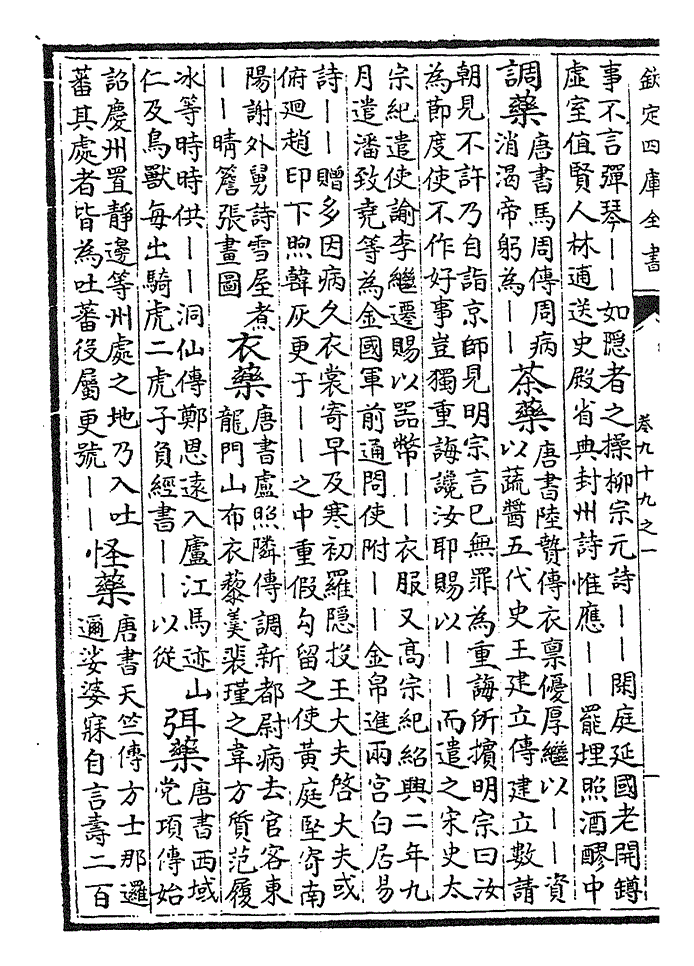 欽定四庫全書
卷九十九之一
事不言彈琴——如隱者之操柳宗元詩——閑庭延國老開罇
虚室值賢人林逋送史殿省典封州詩惟應——罷埋照酒醪中
調藥
唐書馬周傳周病
消渴帝躬為——
茶藥
唐書陸贄傳衣稟優厚繼以——資
以蔬醬五代史王建立傳建立數請
朝見不許乃自詣京師見明宗言已無罪為重誨所擯明宗曰汝
為節度使不作好事豈獨重誨讒汝耶賜以——而遣之宋史太
宗紀遣使諭李繼遷賜以器幣——衣服又髙宗紀紹興二年九
月遣潘致堯等為金國軍前通問使附——金帛進兩宮白居易
詩——贈多因病久衣裳寄早及寒初羅隱投王大夫啓大夫或
俯廻趙印下煦韓灰更于——之中重假勾留之使黃庭堅寄南
陽謝外舅詩雪屋煮
——晴簷張畫圖
衣藥
唐書盧照隣傳調新都尉病去官客東
龍門山布衣藜羮裴瑾之韋方質范履
冰等時時供——洞仙傳鄭思遠入廬江馬迹山
仁及鳥獸每出騎虎二虎子負經書——以從
弭藥
唐書西域
党項傳始
詔慶州置靜邊等州處之地乃入吐
蕃其處者皆為吐蕃役屬更號——
怪藥
唐書天竺傳方士那邏
邇娑婆寐自言壽二百